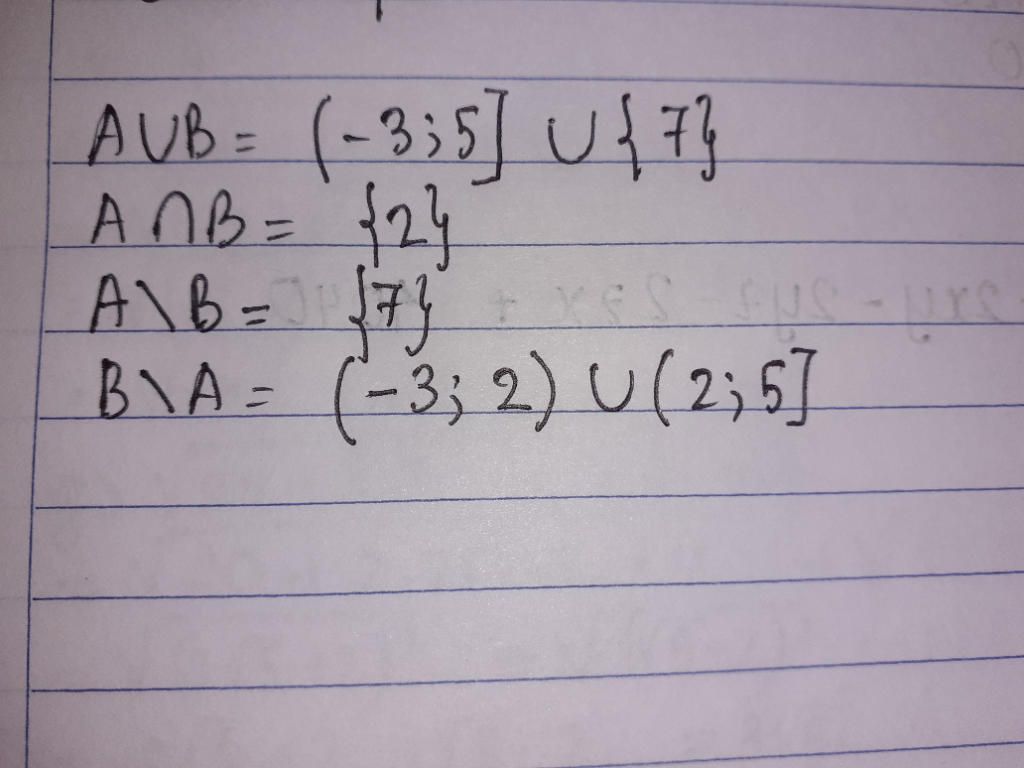 A∪B = (-3;5] ∪ {7}
A∩B = {2}
A\B = {7}
B\A = (-3; 2) ∪ (2; 5]